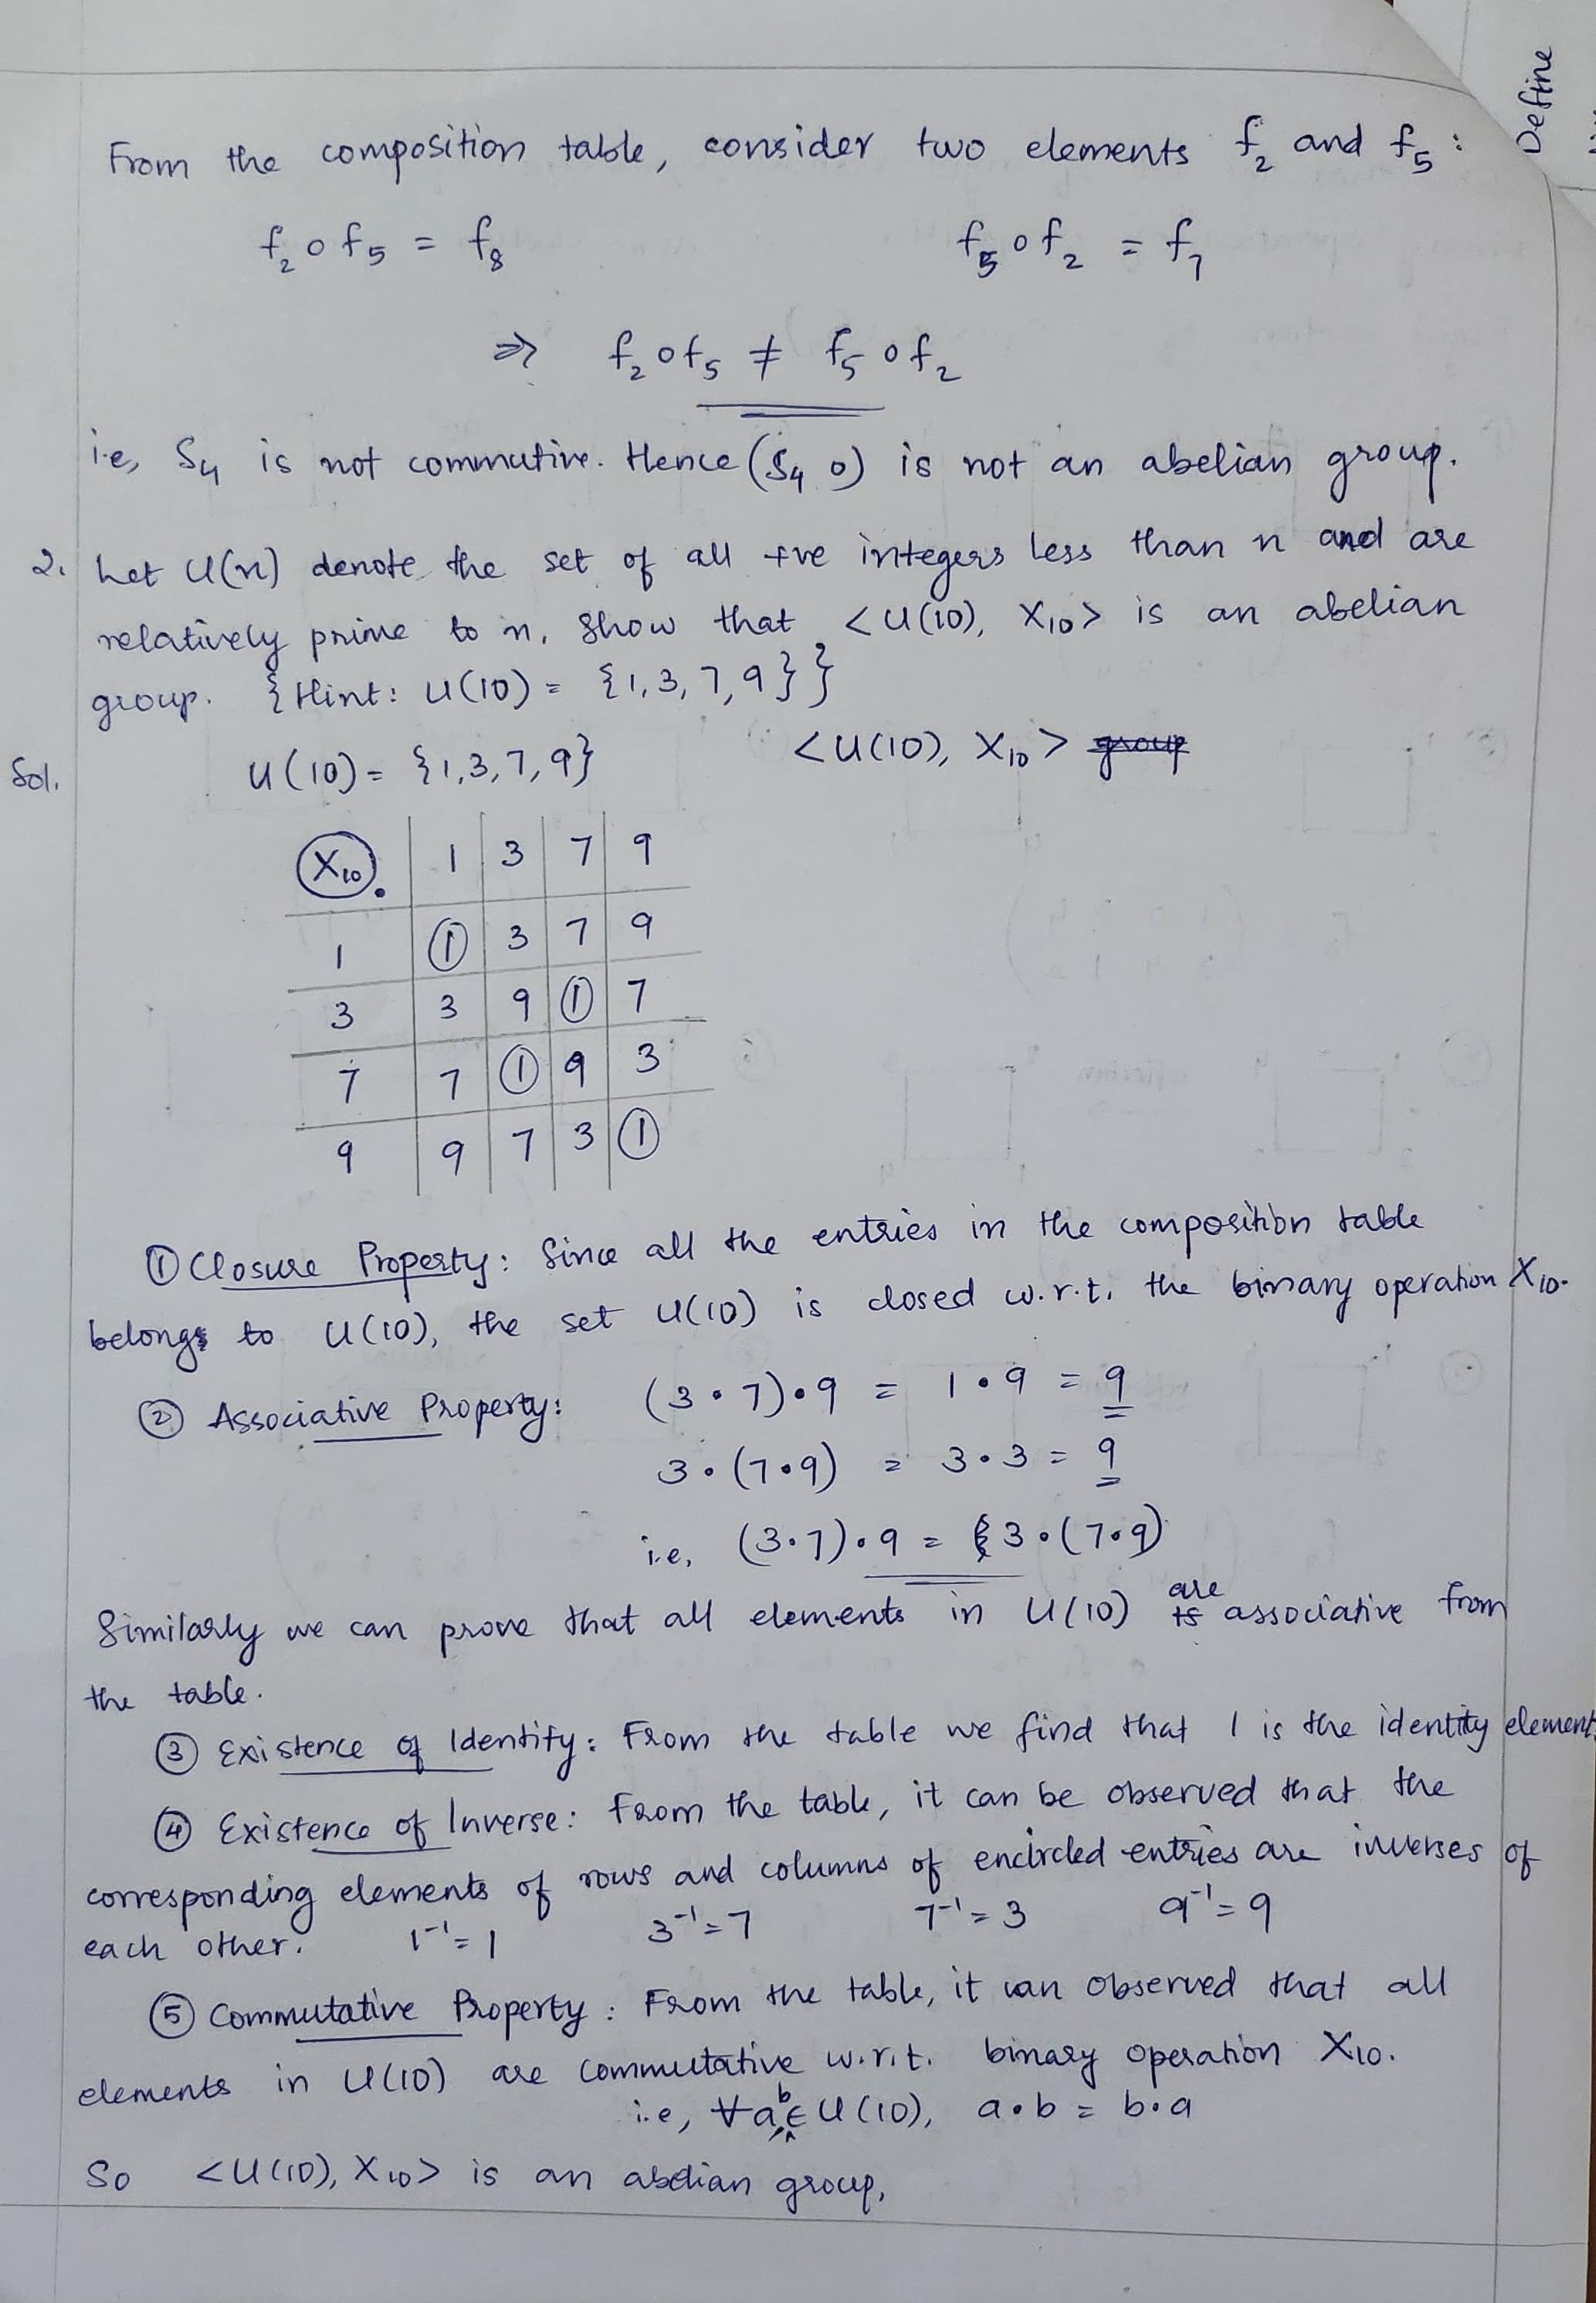 Define
From the composition table, consider two elements f₂ and f₅ :
f₂ o f₅ = f₈ f₅ o f₂ = f₇
⇒ f₂ o f₅ ≠ f₅ o f₂
i.e, S₄ is not commutive. Hence (S₄ o) is not an abelian group.
2. Let U(n) denote the set of all +ve integers less than n and are
relatively prime to n, Show that <U(10), X₁₀> is an abelian
group. {Hint: U(10) = {1,3,7,9}}
Sol. U(10) = {1,3,7,9} <U(10), X₁₀> group
X₁₀ 1 3 7 9
1 1 3 7 9
3 3 9 1 7
7 7 1 9 3
9 9 7 3 1
① Closure Property: Since all the entries in the composition table
belongs to U(10), the set U(10) is closed w.r.t. the binary operation X₁₀.
② Associative Property: (3•7)•9 = 1•9 = 9
3•(7•9) = 3•3 = 9
i.e, (3•7)•9 = 3•(7•9)
Similarly we can prove that all elements in U(10) are associative from
the table.
③ Existence of Identity: From the table we find that 1 is the identity element.
④ Existence of Inverse: From the table, it can be observed that the
corresponding elements of rows and columns of encircled entries are inverses of
each other. 1⁻¹=1 3⁻¹=7 7⁻¹=3 9⁻¹=9
⑤ Commutative Property: From the table, it can observed that all
elements in U(10) are commutative w.r.t. binary operation X₁₀.
i.e, ∀a,b ∈ U(10), a•b = b•a
So <U(10), X₁₀> is an abelian group,